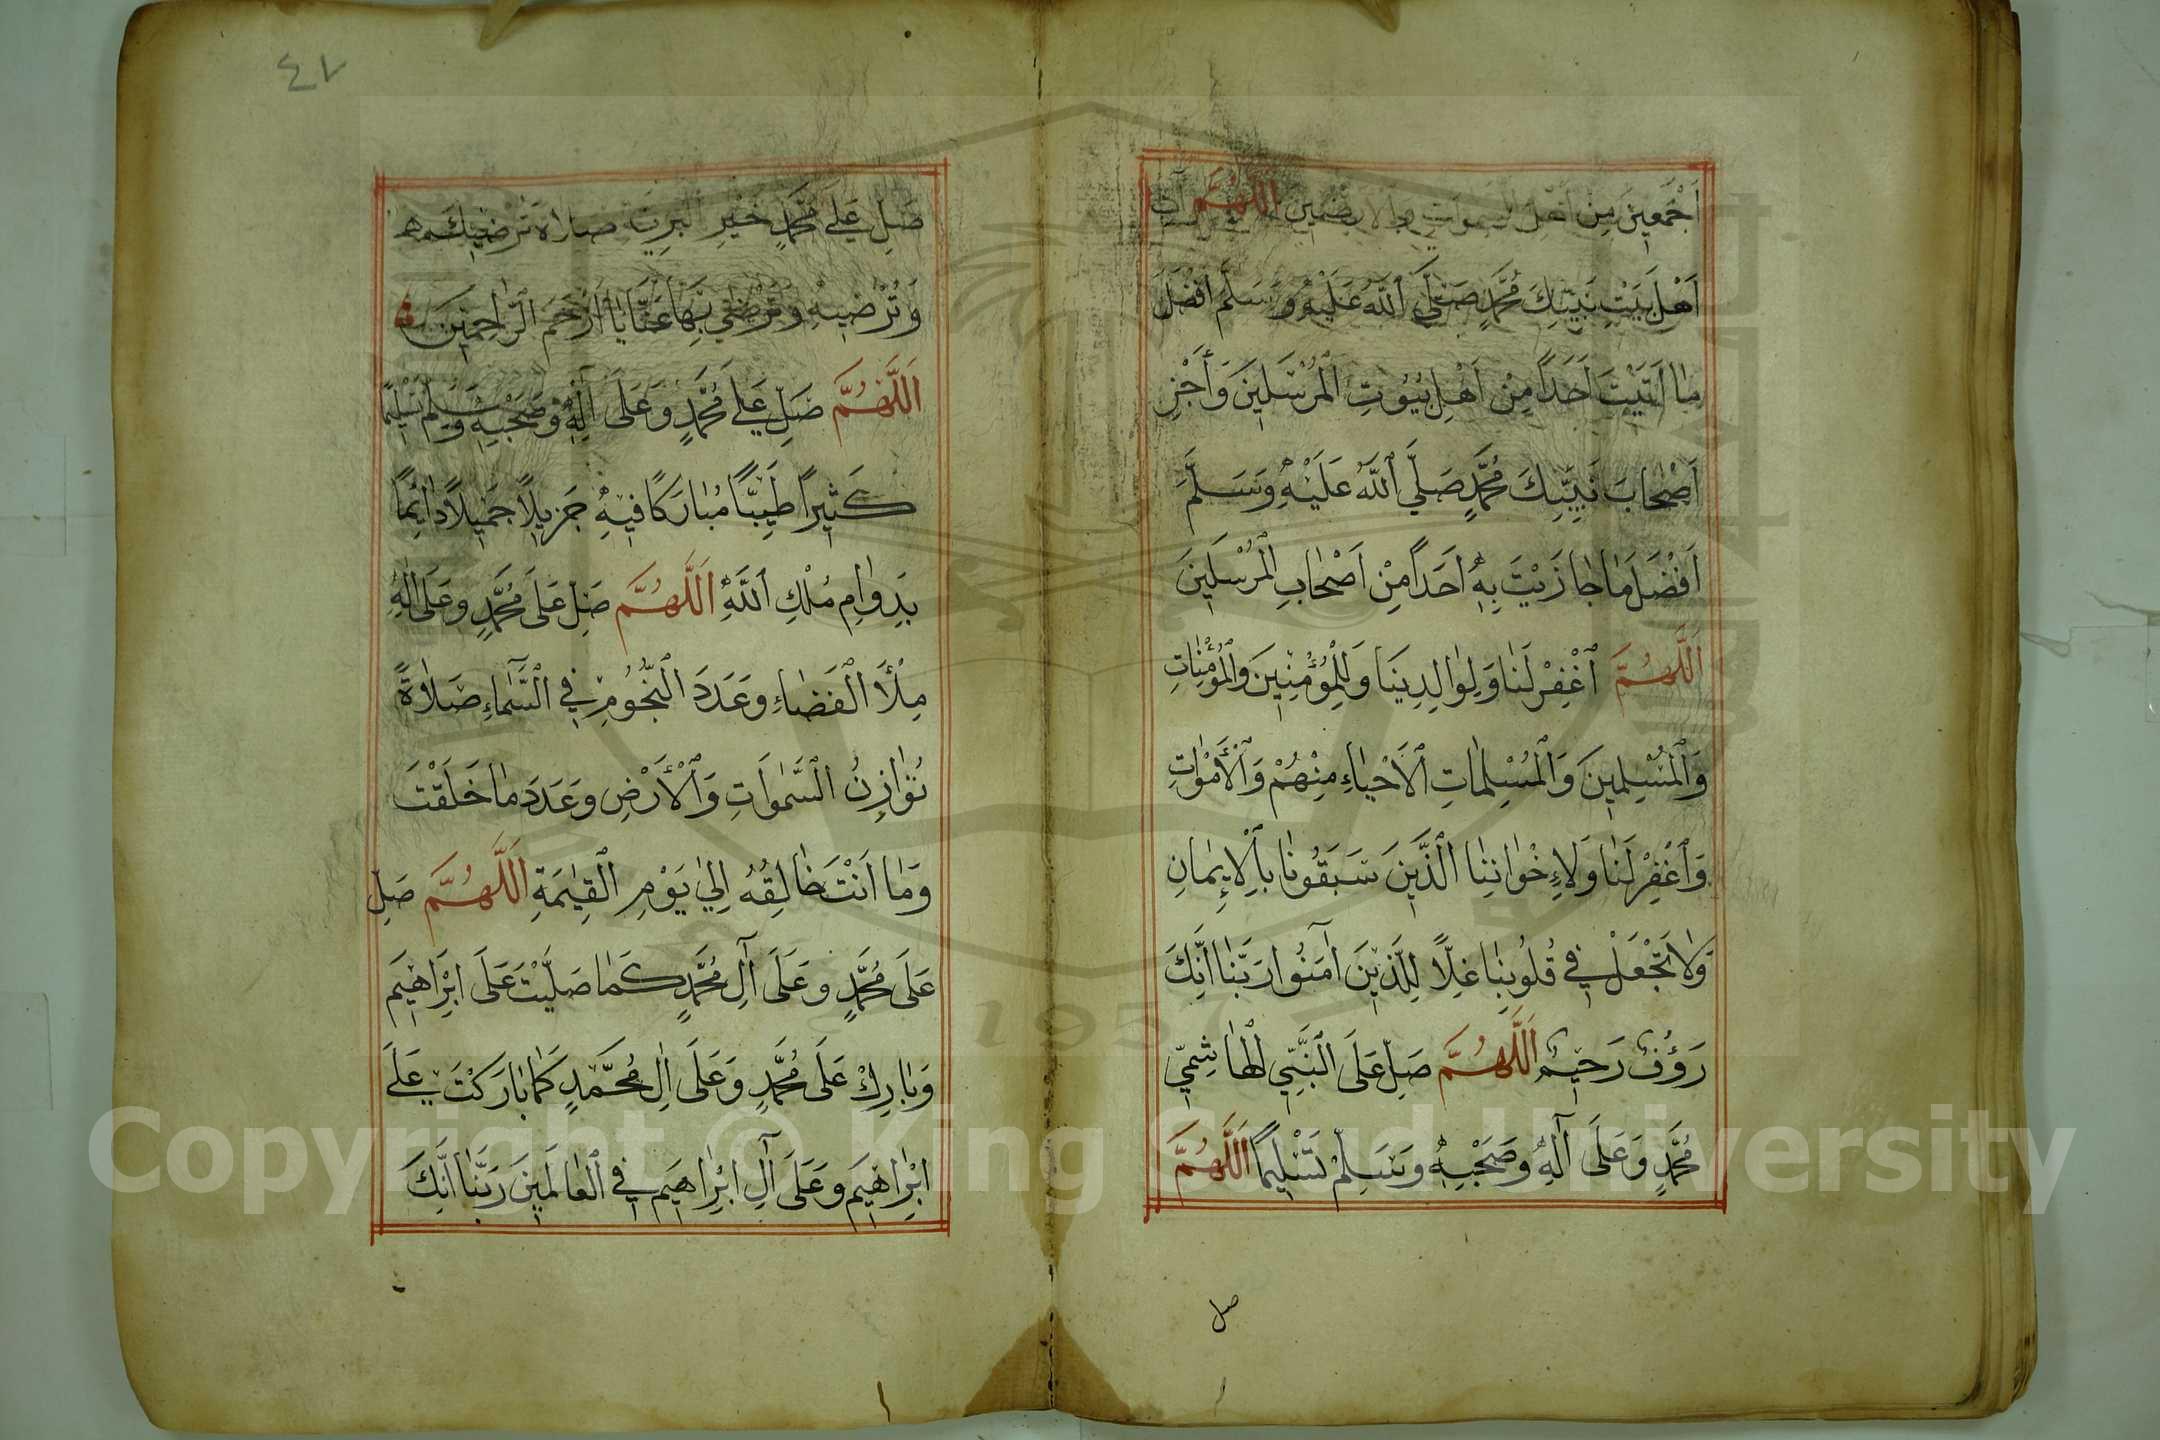 اَجْمَعِينَ مِنْ اَهْلِ السَّمٰوَاتِ وَالْاَرَضِينَ اَللّٰهُمَّ
اَهْلَ بَيْتِ نَبِيِّكَ مُحَمَّدٍ صَلَّى اللّٰهُ عَلَيْهِ وَسَلَّمَ اَفْضَلَ
مٰا اَتَيْتَ اَحَدًا مِنْ اَهْلِ بُيُوتِ الْمُرْسَلِينَ وَأَجْزِ
اَصْحَابَ نَبِيِّكَ مُحَمَّدٍ صَلَّى اللّٰهُ عَلَيْهِ وَسَلَّمَ
اَفْضَلَ مَا جَازَيْتَ بِهِ اَحَدًا مِنْ اَصْحَابِ الْمُرْسَلِينَ
اَللّٰهُمَّ اغْفِرْ لَنَا وَلِوَالِدِينَا وَلِلْمُؤْمِنِينَ وَالْمُؤْمِنَاتِ
وَالْمُسْلِمِينَ وَالْمُسْلِمَاتِ الْاَحْيَاءِ مِنْهُمْ وَالْأَمْوَاتِ
وَاغْفِرْ لَنَا وَلِاِخْوَانِنَا الَّذِينَ سَبَقُونَا بِالْاِيمَانِ
وَلَا تَجْعَلْ فِي قُلُوبِنَا غِلًّا لِلَّذِينَ اٰمَنُوا رَبَّنَا اِنَّكَ
رَؤُفٌ رَحِيمٌ اَللّٰهُمَّ صَلِّ عَلَى النَّبِيِّ الْهَاشِمِيِّ
مُحَمَّدٍ وَعَلَى آلِهِ وَصَحْبِهِ وَسَلِّمْ تَسْلِيمًا اَللّٰهُمَّ
صل
٤٧
صَلِّ عَلَى مُحَمَّدٍ خَيْرِ الْبَرِيَّةِ صَلَاةً تُرْضِيكَ
وَتُرْضِيهِ وَتَرْضٰى بِهَا عَنَّا يَا اَرْحَمَ الرَّاحِمِينَ
اَللّٰهُمَّ صَلِّ عَلَى مُحَمَّدٍ وَعَلَى آلِهِ وَصَحْبِهِ وَسَلِّمْ تَسْلِيمًا
كَثِيرًا طَيِّبًا مُبَارَكًا فِيهِ جَزِيلًا جَمِيلًا دَائِمًا
بِدَوَامِ مُلْكِ اللّٰهِ اَللّٰهُمَّ صَلِّ عَلَى مُحَمَّدٍ وَعَلَى اٰلِهِ
مِلْأَ الْفَضَاءِ وَعَدَدَ النُّجُومِ فِي السَّمَاءِ صَلَاةً
تُوَازِنُ السَّمٰوَاتِ وَالْأَرْضِ وَعَدَدَ مَا خَلَقْتَ
وَمَا اَنْتَ خَالِقُهُ اِلَى يَوْمِ الْقِيٰمَةِ اَللّٰهُمَّ صَلِّ
عَلَى مُحَمَّدٍ وَعَلَى آلِ مُحَمَّدٍ كَمَا صَلَّيْتَ عَلَى اِبْرَاهِيمَ
وَبَارِكْ عَلَى مُحَمَّدٍ وَعَلَى اٰلِ مُحَمَّدٍ كَمَا بَارَكْتَ عَلَى
اِبْرَاهِيمَ وَعَلَى آلِ اِبْرَاهِيمَ فِي الْعَالَمِينَ رَبَّنَا اِنَّكَ
1957
Copyright © King Saud University